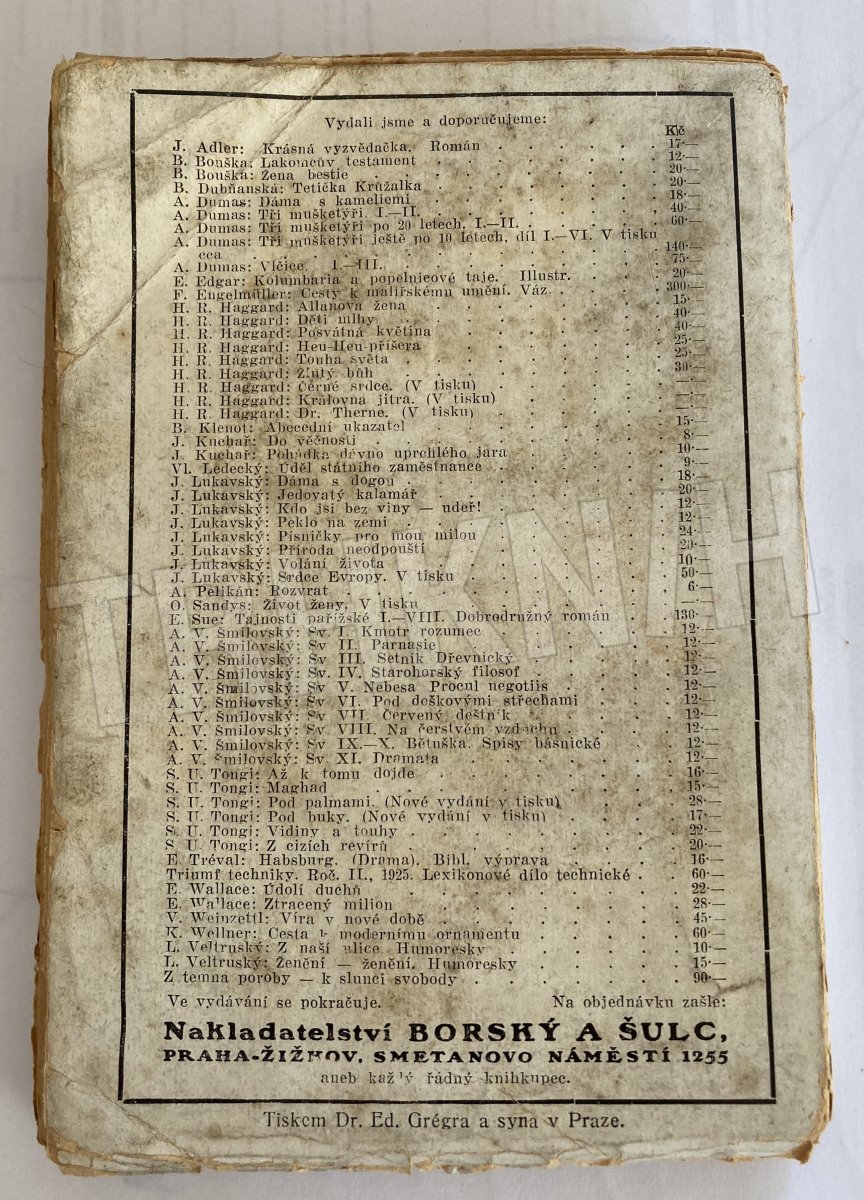 Vydali jsme a doporučujeme:
Kč
J. Adler: Krásná vyzvědačka. Román . . . . . . 17·—
B. Bouška: Lakomcův testament . . . . . . . 12·—
B. Bouška: Žena bestie . . . . . . . . 20·—
B. Dubňanská: Tetička Krůžalka . . . . . . . 20·—
A. Dumas: Dáma s kameliemi . . . . . . . 18·—
A. Dumas: Tři mušketýři. I.—II. . . . . . . . 40·—
A. Dumas: Tři mušketýři po 20 letech. I.—II. . . . . . 60·—
A. Dumas: Tři mušketýři ještě po 10 letech, díl I.—VI. V tisku
cca . . . . . . . . . . . . 140·—
A. Dumas: Vlčice. I.—III. . . . . . . . . 75·—
E. Edgar: Kolumbaria a popelnicové taje. Illustr. . . . . 20·—
F. Engelmüller: Cesty k malířskému umění. Váz. . . . . 300·—
H. R. Haggard: Allanova žena . . . . . . . 15·
H. R. Haggard: Děti mlhy . . . . . . . . 40·—
H. R. Haggard: Posvátná květina . . . . . . 40·—
H. R. Haggard: Heu-Heu-příšera . . . . . . 25·—
H. R. Haggard: Touha světa . . . . . . . 25·—
H. R. Haggard: Žlutý bůh . . . . . . . . 30·—
H. R. Haggard: Černé srdce. (V tisku) . . . . . —·—
H. R. Haggard: Královna jitra. (V tisku) . . . . . —·—
H. R. Haggard: Dr. Therne. (V tisku) . . . . . —·—
B. Klenot: Abecední ukazatel . . . . . . . 15·—
J. Kuchař: Do věčnosti . . . . . . . . 8·—
J. Kuchař: Pohádka dávno uprchlého jara . . . . . 10·—
Vl. Ledecký: Úděl státního zaměstnance . . . . . 9·—
J. Lukavský: Dáma s dogou . . . . . . . 18·—
J. Lukavský: Jedovatý kalamář . . . . . . . 20·—
J. Lukavský: Kdo jsi bez viny — udeř! . . . . . 12·—
J. Lukavský: Peklo na zemi . . . . . . . 12·—
J. Lukavský: Písničky pro mou milou . . . . . . 24·—
J. Lukavský: Příroda neodpouští . . . . . . 20·—
J. Lukavský: Volání života . . . . . . . 10·—
J. Lukavský: Srdce Evropy. V tisku . . . . . . 50·—
A. Pelikán: Rozvrat . . . . . . . . . 6·—
O. Sandys: Život ženy. V tisku . . . . . . . —·—
E. Sue: Tajnosti pařížské I.—VIII. Dobrodružný román . . 130·—
A. V. Šmilovský: Sv I. Kmotr rozumec . . . . . 12·—
A. V. Šmilovský: Sv II. Parnasie . . . . . . 12·—
A. V. Šmilovský: Sv III. Setník Dřevnický . . . . . 12·—
A. V. Šmilovský: Sv. IV. Starohorský filosof . . . . 12·—
A. V. Šmilovský: Sv V. Nebesa Procul negotiis . . . . 12·—
A. V. Šmilovský: Sv VI. Pod doškovými střechami . . . 12·—
A. V. Šmilovský: Sv VII. Červený deštník . . . . . 12·—
A. V. Šmilovský: Sv VIII. Na čerstvém vzduchu . . . . 12·—
A. V. Šmilovský: Sv IX.—X. Bětuška. Spisy básnické . . 12·—
A. V. Šmilovský: Sv XI. Dramata . . . . . . 12·—
S. U. Tongi: Až k tomu dojde . . . . . . . 16·—
S. U. Tongi: Maghad . . . . . . . . . 15·—
S. U. Tongi: Pod palmami. (Nové vydání v tisku) . . . . 28·—
S. U. Tongi: Pod buky. (Nové vydání v tisku) . . . . 17·—
S. U. Tongi: Vidiny a touhy . . . . . . . 22·—
S. U. Tongi: Z cizích revírů . . . . . . . 20·—
E. Tréval: Habsburg. (Drama). Bibl. výprava . . . . 16·—
Triumf techniky. Roč. II., 1925. Lexikonové dílo technické . . 60·—
E. Wallace: Údolí duchů . . . . . . . . 22·—
E. Wallace: Ztracený milion . . . . . . . 28·—
V. Weinzettl: Víra v nové době . . . . . . . 45·—
K. Wellner: Cesta k modernímu ornamentu . . . . . 60·—
L. Veltruský: Z naší ulice Humoresky . . . . . . 10·—
L. Veltruský: Ženění — ženění. Humoresky . . . . . 15·—
Z temna poroby — k slunci svobody . . . . . . 90·—
Ve vydávání se pokračuje. Na objednávku zašle:
Nakladatelství BORSKÝ A ŠULC,
PRAHA-ŽIŽKOV, SMETANOVO NÁMĚSTÍ 1255
aneb každý řádný knihkupec.
Tiskem Dr. Ed. Grégra a syna v Praze.